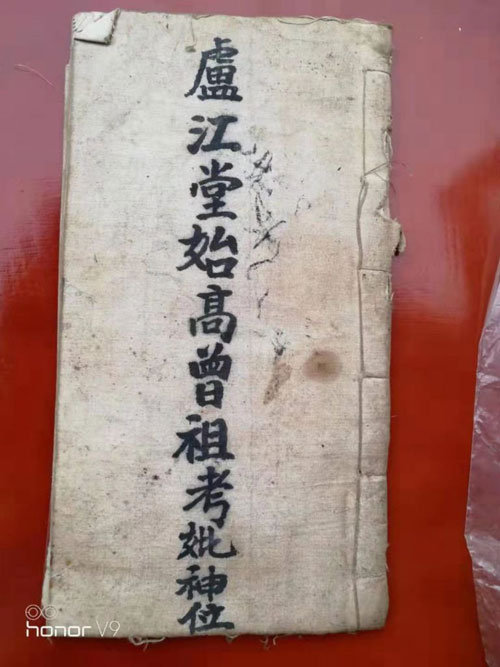 盧江堂始高曾祖考妣神位
honor V9